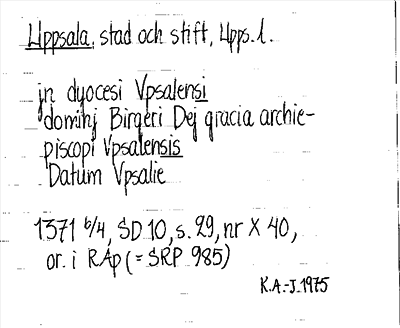 Uppsala, stad och stift, Upps. l.
jn dyocesi Vpsalensi
dominj Birgeri Dej gracia archie-
piscopi Vpsalensis
Datum Vpsalie
1371 6/4, SD 10, s. 29, nr X 40,
or. i RAp (= SRP 985)
K.A.-J. 1975